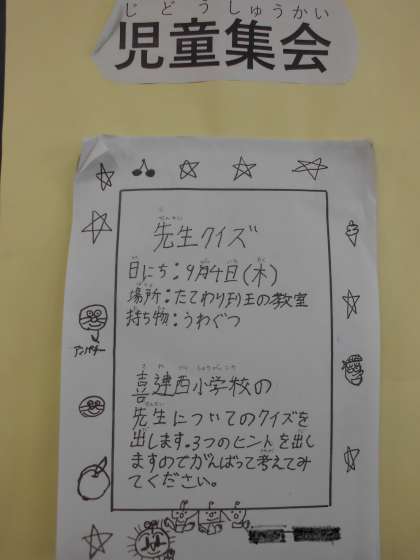 じどうしゅうかい
児童集会
せんせい
先生クイズ
日にち:9月4日(木)
場所:たてわり班の教室
持ち物:うわぐつ
喜連西小学校の
せんせい
先生についてのクイズを
出します。3つのヒントを出し
ますのでがんばって考えてみ
てください。
アンパンマン